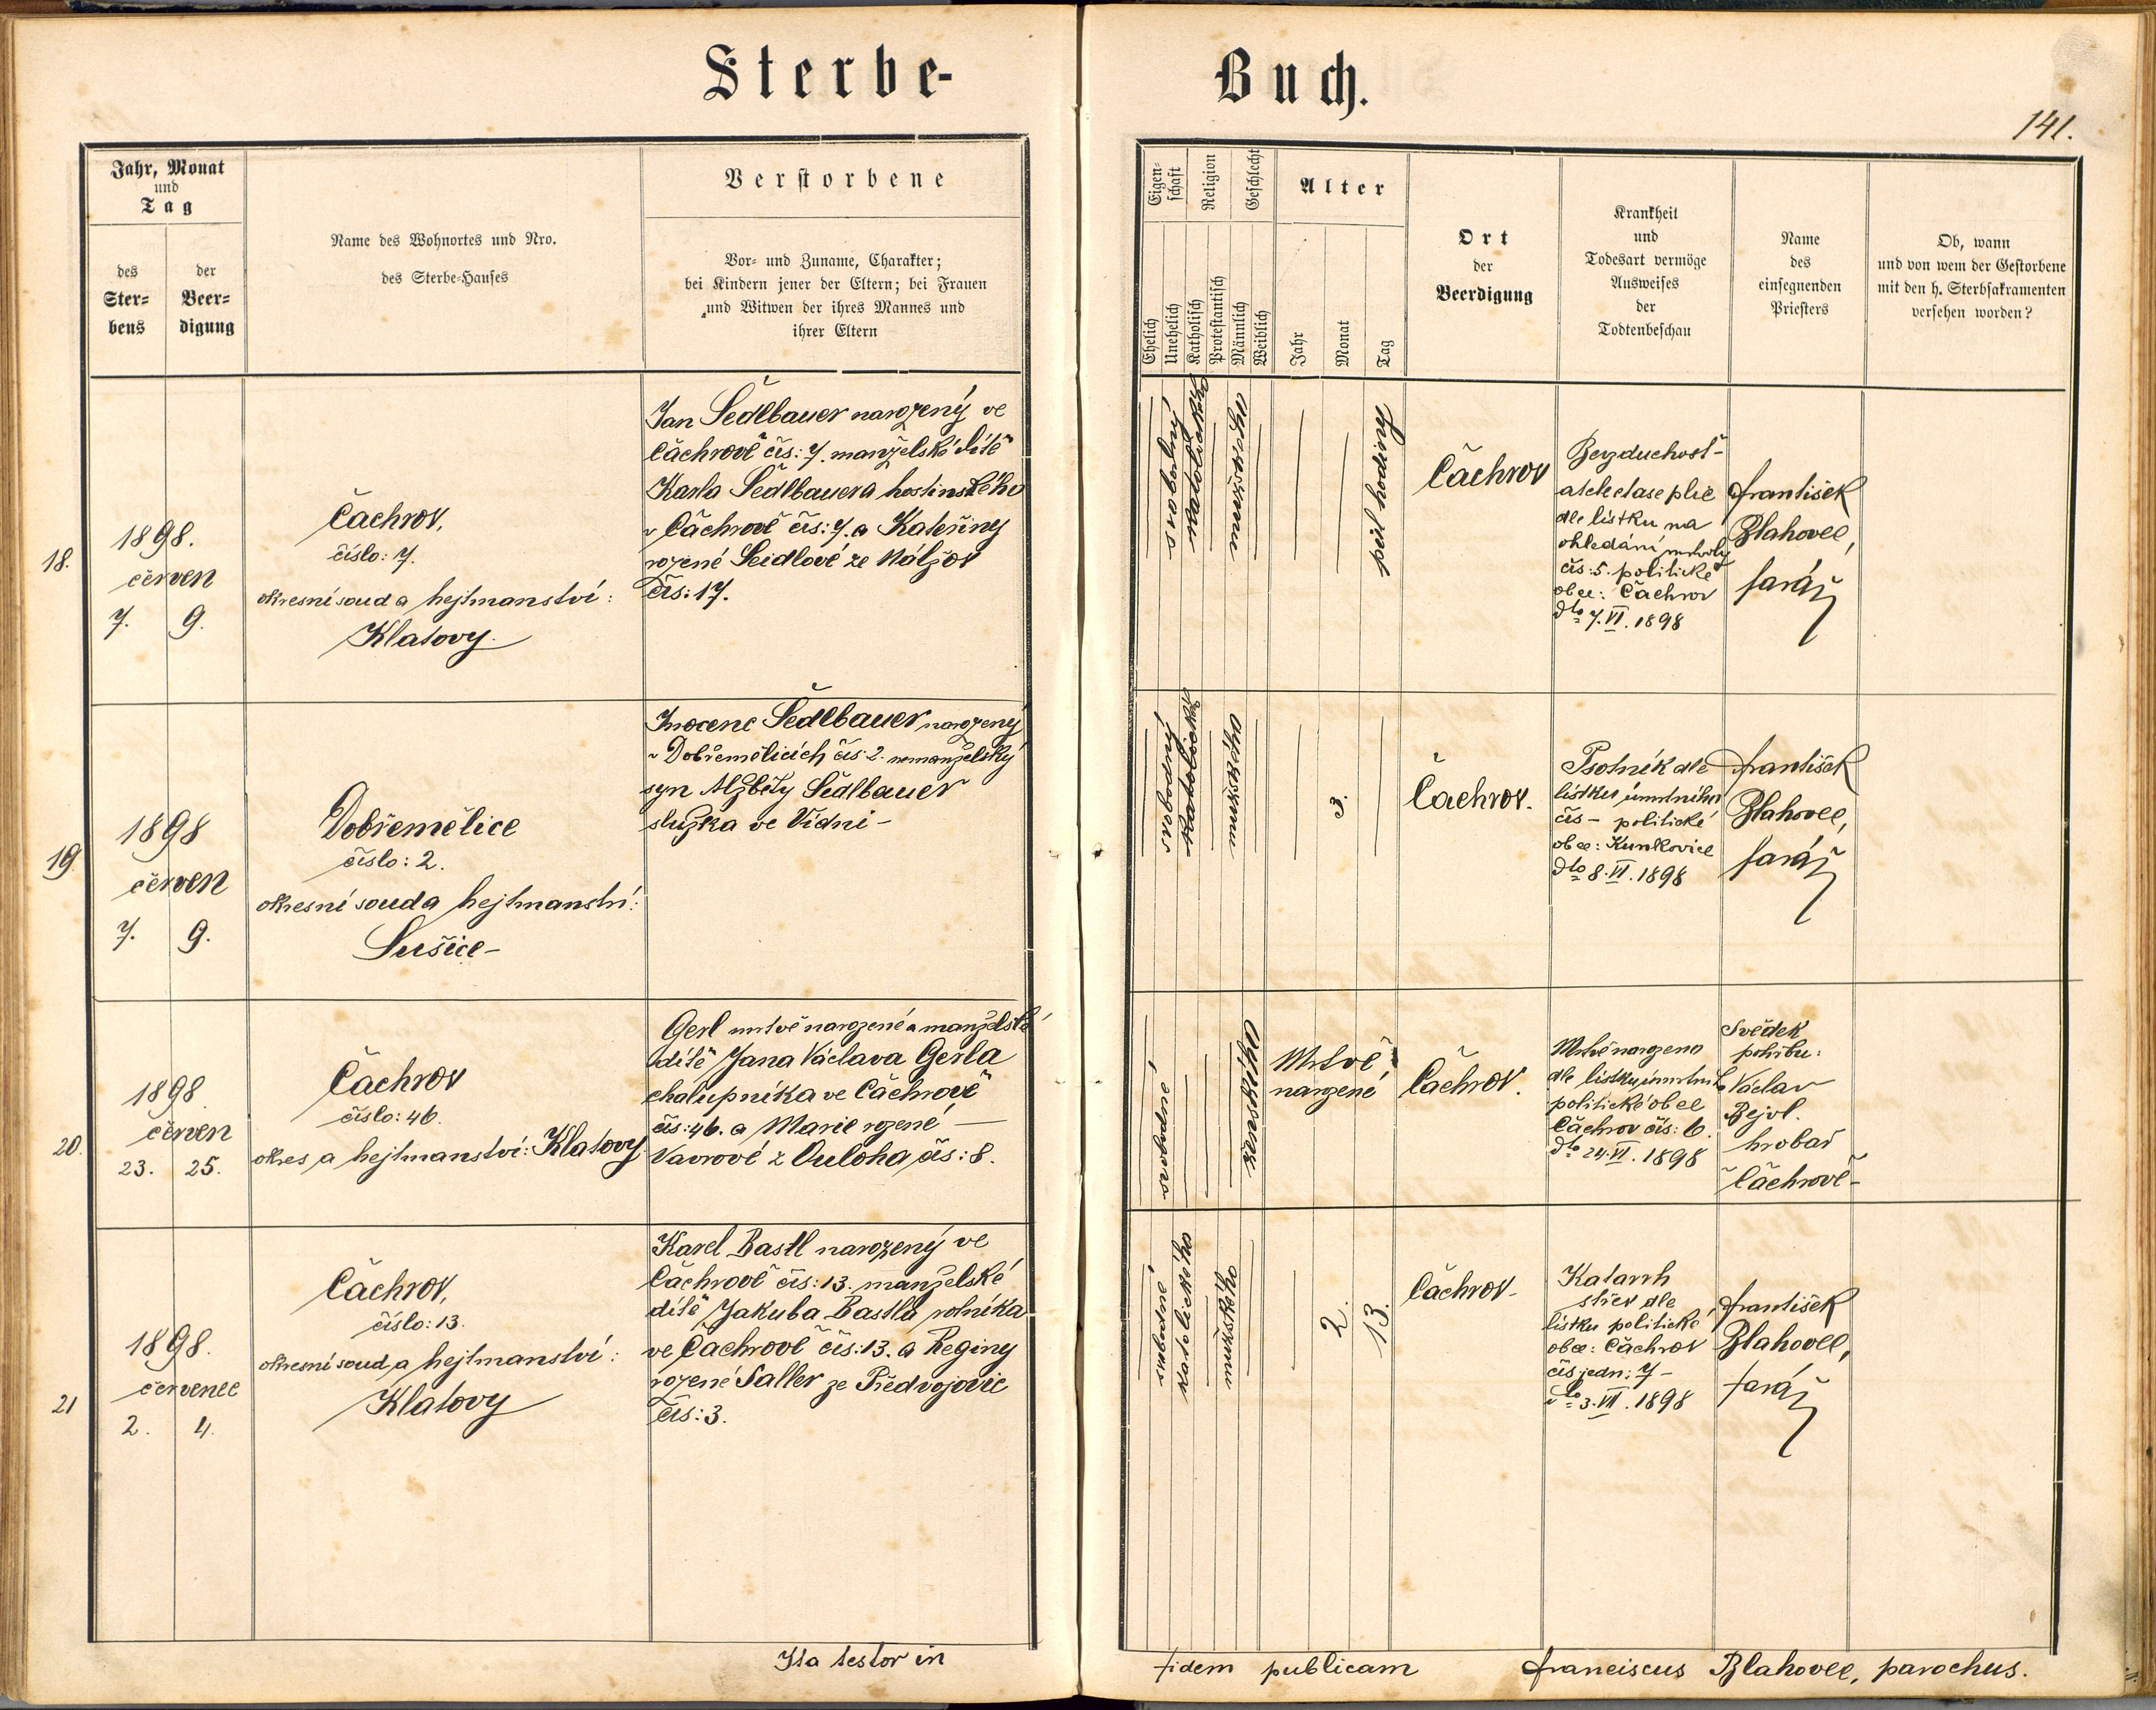 Sterbe-
Buch.
141.
Jahr, Monat
und
Tag
des
Ster=
bens
der
Beer=
digung
Name des Wohnortes und Nro.
des Sterbe=Hauses
Verstorbene
Vor= und Zuname, Charakter;
bei Kindern jener der Eltern; bei Frauen
und Witwen der ihres Mannes und
ihrer Eltern
Eigen=
schaft
Religion
Geschlecht
Ehelich
Unehelich
Katholisch
Protestantisch
Männlich
Weiblich
Alter
Jahr
Monat
Tag
Ort
der
Beerdigung
Krankheit
und
Todesart vermöge
Ausweises
der
Todtenbeschau
Name
des
einsegnenden
Priesters
Ob, wann
und von wem der Gestorbene
mit den h. Sterbsakramenten
versehen worden?
18.
1898.
červen
7. 9.
Čachrov,
číslo: 7.
okresní soud a hejtmanství:
Klatovy.
Jan Šedlbauer narozený ve
Čachrově čís: 7. manželské dítě
Karla Šedlbauera hostinského
v Čachrově čís: 7. a Kateřiny
rozené Seidlové ze
čís: 17.
svobodný
katolické
mužského
půl hodiny
Čachrov
Bezduchost-
plic
dle lístku na
ohledání mrtvoly
čís: 5. politické
obce: Čachrov
dto 7. VI. 1898
František
Blahovec,
farář
19.
1898
červen
7. 9.
Dobřemělice
číslo: 2.
okresní soud a hejtmanství:
Sušice-
Inocenc Šedlbauer narozený
v Dobřemělicích čís: 2. nemanželský
syn Alžběty Šedlbauer
služka ve Vídni-
svobodný
katolické
mužského
3.
Čachrov.
Psotník dle
lístku úmrtního
čís - politické
obce: Kunkovice
dto 8. VI. 1898
František
Blahovec,
farář
20.
1898.
červen
23. 25.
Čachrov
číslo: 46.
okres a hejtmanství: Klatovy
Gerl mrtvě narozené a manželské
dítě Jana Václava Gerla
chalupníka ve Čachrově
čís: 46. a Marie rozené
Vavrové z Ouloha čís: 8.
svobodné
ženského
Mrtvě
narozené
Čachrov.
Mrtvě narozeno
dle lístku úmrtního
politické obce
Čachrov čís: 6.
dto 24. VI. 1898
Svědek
pohřbu:
Václav
Bejvl.
hrobař
v Čachrově-
21
1898.
červenec
2. 4.
Čachrov,
číslo: 13.
okresní soud a hejtmanství:
Klatovy
Karel Bastl narozený ve
Čachrově čís: 13. manželské
dítě Jakuba Bastla rolníka
ve Čachrově čís: 13. a Reginy
rozené Saller ze Předvojovic
čís: 3.
svobodné
katolického
mužského
2.
13.
Čachrov-
Katarrh
střev dle
lístku politické
obce: Čachrov
čís jedn: 7-
dto 3. VII. 1898
František
Blahovec,
farář
Ita testor in
fidem publicam
Franciscus Blahovec, parochus.